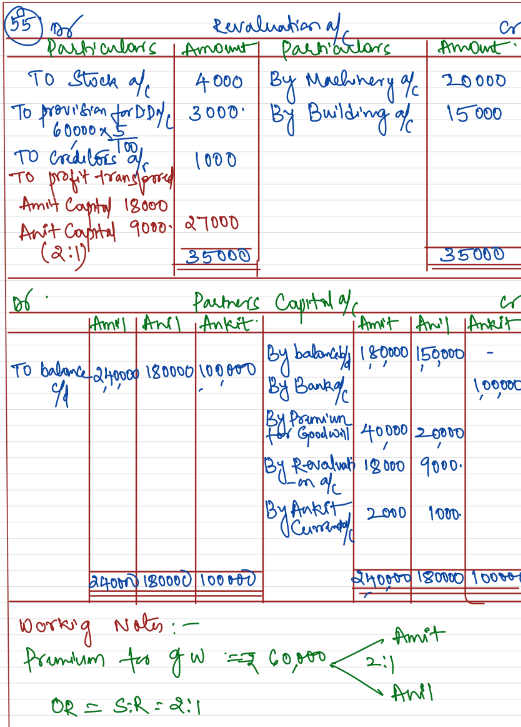 55 Dr Revaluation a/c Cr
Particulars Amount Particulars Amount
TO Stock a/c 4000 By Machinery a/c 20000
To provision for DD a/c 3000 By Building a/c 15000
60000 x 5/100
TO Creditors a/c 1000
TO profit transferred
Amit Capital 18000
Anit Capital 9000 27000
(2:1)
35000 35000
Dr Partners Capital a/c Cr
Amit Anil Ankit Amit Anil Ankit
To balance c/d 240000 180000 100000 By balance b/d 180000 150000 -
By Bank a/c 100000
By Premium for Goodwill 40000 20000
By Revaluation a/c 18000 9000
By Ankit Current a/c 2000 1000
240000 180000 100000 240000 180000 100000
Workig Notes :-
Premium for gw = ₹ 60,000 2:1
Amit
Anil
OR = S.R = 2:1